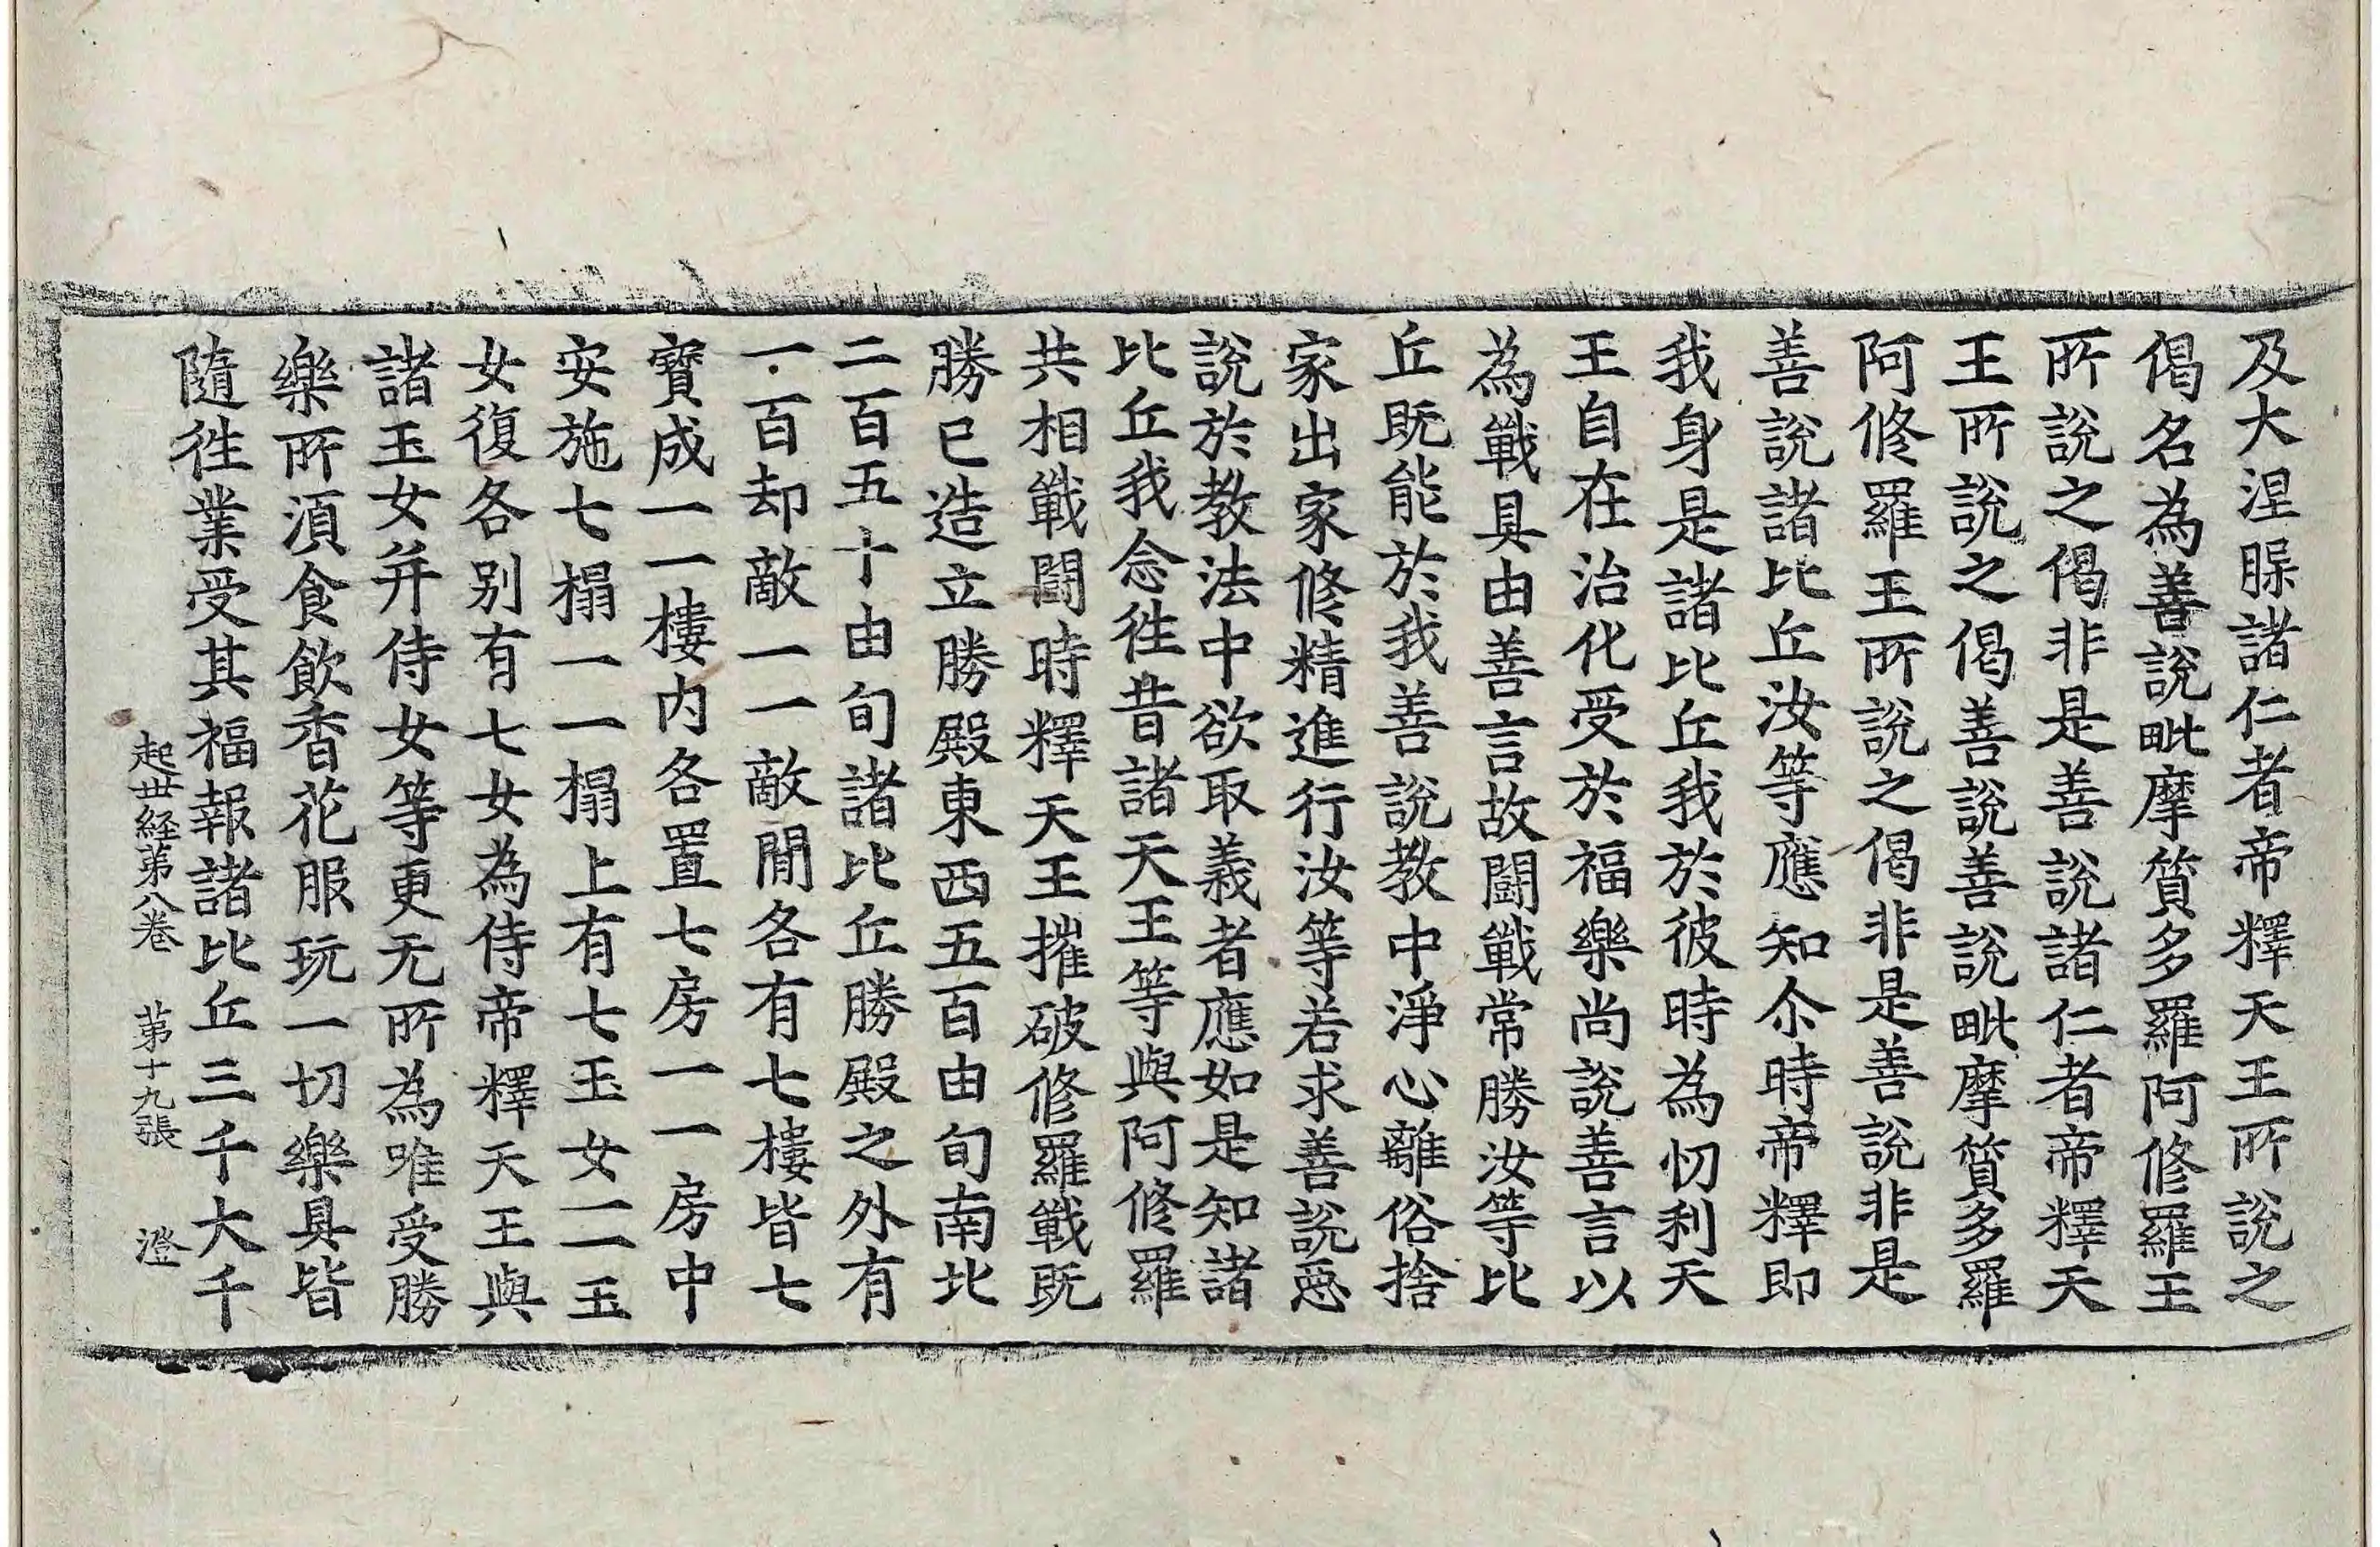 及大涅𣵀諸仁者帝釋天王所說之
偈名為善說毗摩質多羅阿修羅王
所說之偈非是善說諸仁者帝釋天
王所說之偈善說善說毗摩質多羅
阿修羅王所說之偈非是善說非是
善說諸比丘汝等應知尒時帝釋即
我身是諸比丘我於彼時為忉利天
王自在治化受於福樂尚說善言以
為戰具由善言故鬪戰常勝汝等比
丘既能於我善說教中淨心離俗捨
家出家修精進行汝等若求善說惡
說於教法中欲取義者應如是知諸
比丘我念徃昔諸天王等與阿修羅
共相戰鬪時釋天王摧破修羅戰既
勝已造立勝殿東西五百由旬南北
二百五十由旬諸比丘勝殿之外有
一百却敵一一敵閒各有七樓皆七
寶成一一樓內各置七房一一房中
安施七榻一一榻上有七玉女一一玉
女復各別有七女為侍帝釋天王與
諸玉女并侍女等更无所為唯受勝
樂所湏食飲香花服玩一切樂具皆
隨徃業受其福報諸比丘三千大千
起世経苐八卷 苐十九張 澄